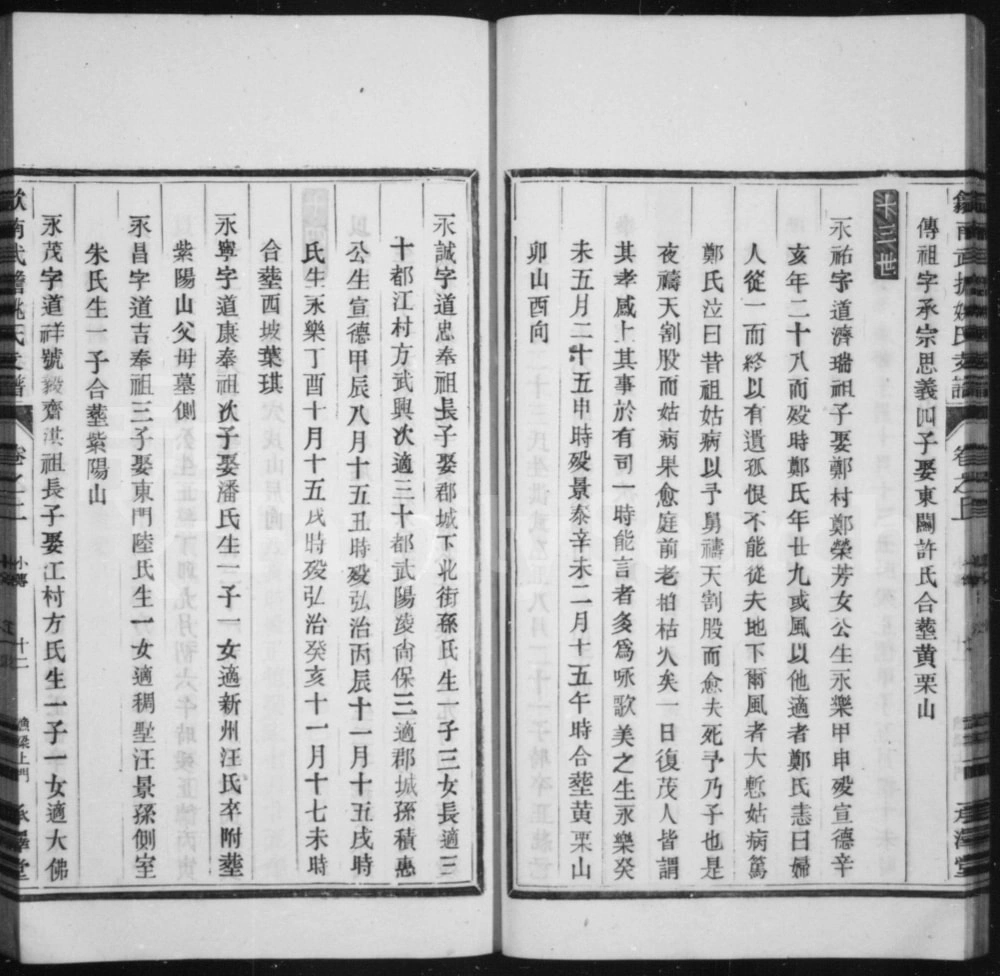 傳祖字承宗思義四子娶東關許氏合塟黄栗山
十三世
永祐字道濟瑞祖子娶鄭村鄭榮芳女公生永樂甲申殁宣德辛
亥年二十八而殁時鄭氏年廿九或風以他適者鄭氏恚曰婦
人從一而終以有遺孤恨不能從夫地下爾風者大慙姑病篤
鄭氏泣曰昔祖姑病以予舅禱天割股而愈夫死予乃子也是
夜禱天割股而姑病果愈庭前老柏枯乆矣一日復茂人皆謂
其孝感上其事於有司一時能言者多爲咏歌美之生永樂癸
未五月二十五申時殁景泰辛未二月十五午時合塟黄栗山
卯山酉向
永誠字道忠奉祖長子娶郡城下北街孫氏生一子三女長適三
十都江村方武興次適三十都武陽凌尙保三適郡城孫積惠
公生宣德甲辰八月十五丑時殁弘治丙辰十一月十五戌時
氏生永樂丁酉十月十五戌時殁弘治癸亥十一月十七未時
合塟西坡葉琪
永寧字道康奉祖次子娶潘氏生二子一女適新州汪氏卒附塟
紫陽山父母墓側
永昌字道吉奉祖三子娶東門陸氏生一女適稠墅汪景孫側室
朱氏生一子合塟紫陽山
永茂字道祥號毅齋淇祖長子娶江村方氏生二子一女適大佛
卷之二 小傳 十二